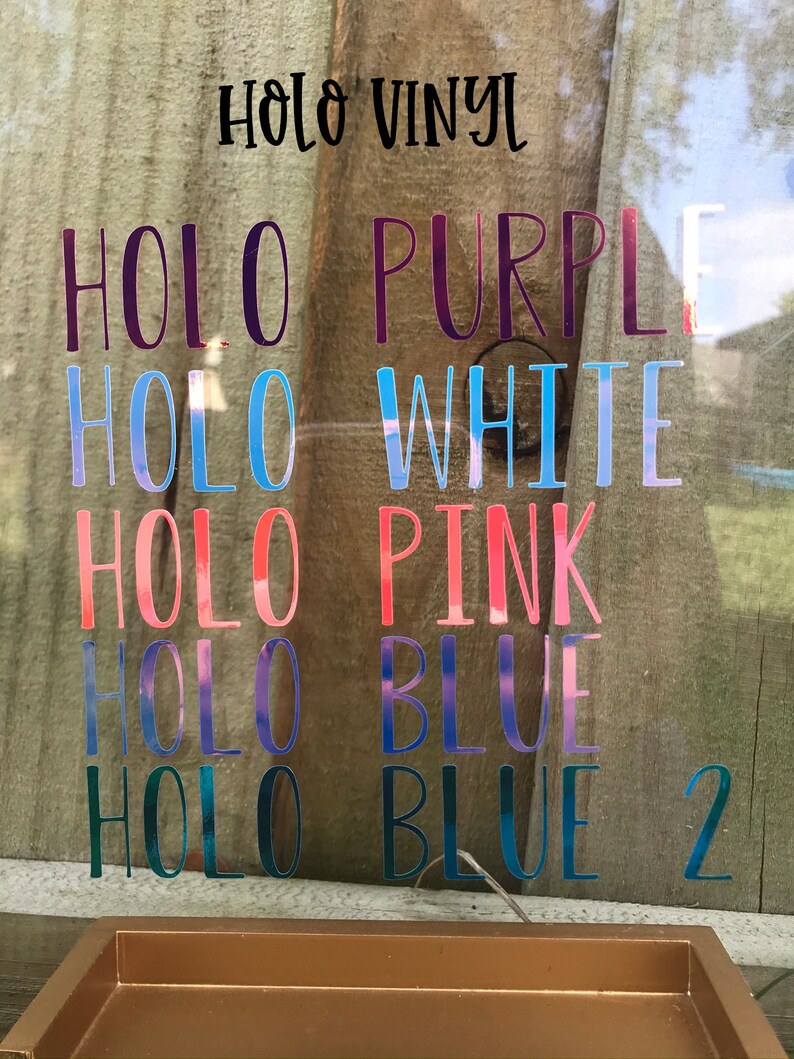 HOLO VINYL
HOLO PURPLE
HOLO WHITE
HOLO PINK
HOLO BLUE
HOLO BLUE 2